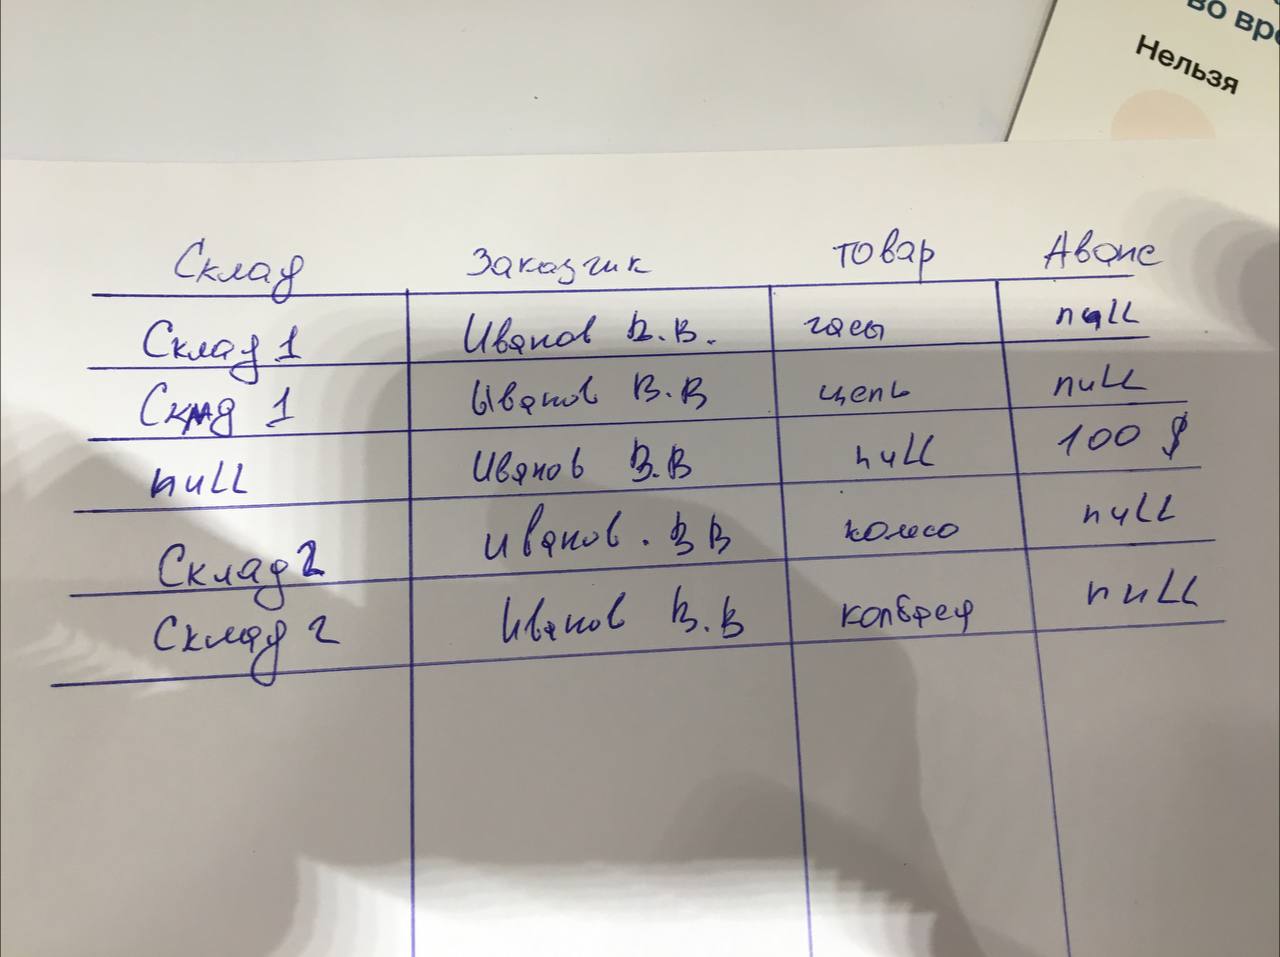 во вре
Нельзя
Склад Заказчик товар Аванс
Склад 1 Иванов В.В. часы null
Склад 1 Иванов В.В цепь null
null Иванов В.В null 100 $
Склад 2 Иванов. ВВ колесо null
Склад 2 Иванов В.В null